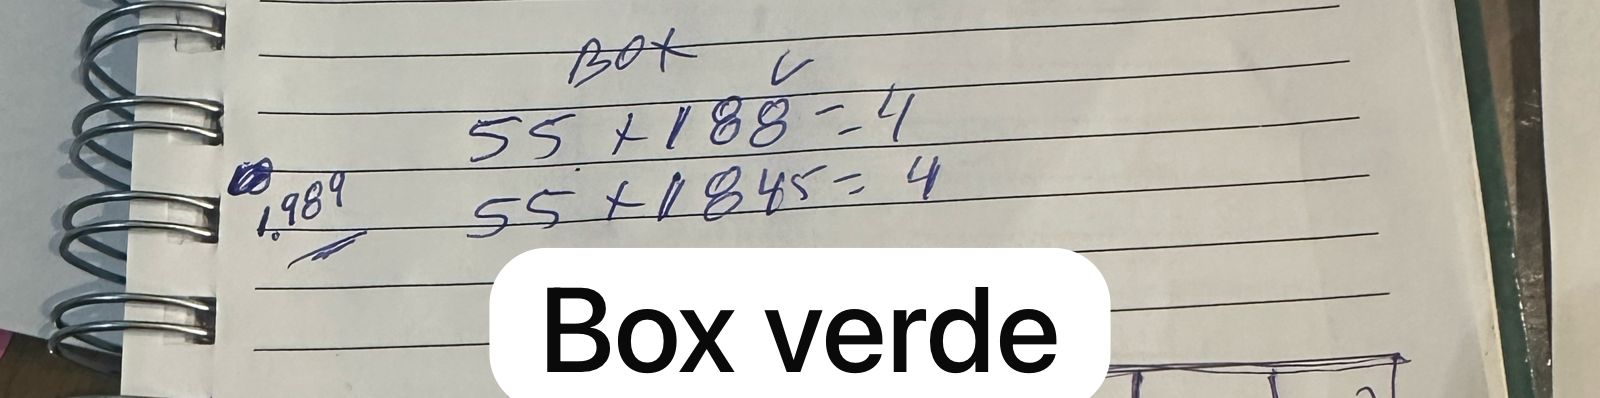 BOX V
55 x 188 = 4
1.989
55 x 1845 = 4
Box verde